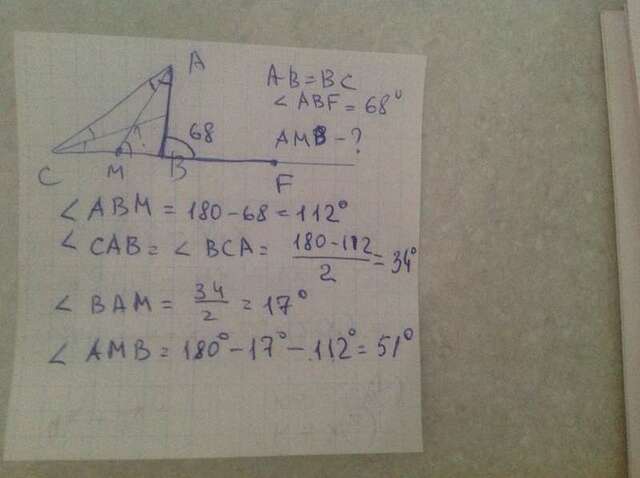 A
AB = BC
∠ ABF = 68°
68
AMB - ?
?
C M B F
∠ ABM = 180 - 68 = 112°
∠ CAB = ∠ BCA = (180 - 112)/2 = 34°
∠ BAM = 34/2 = 17°
∠ AMB = 180° - 17° - 112° = 51°